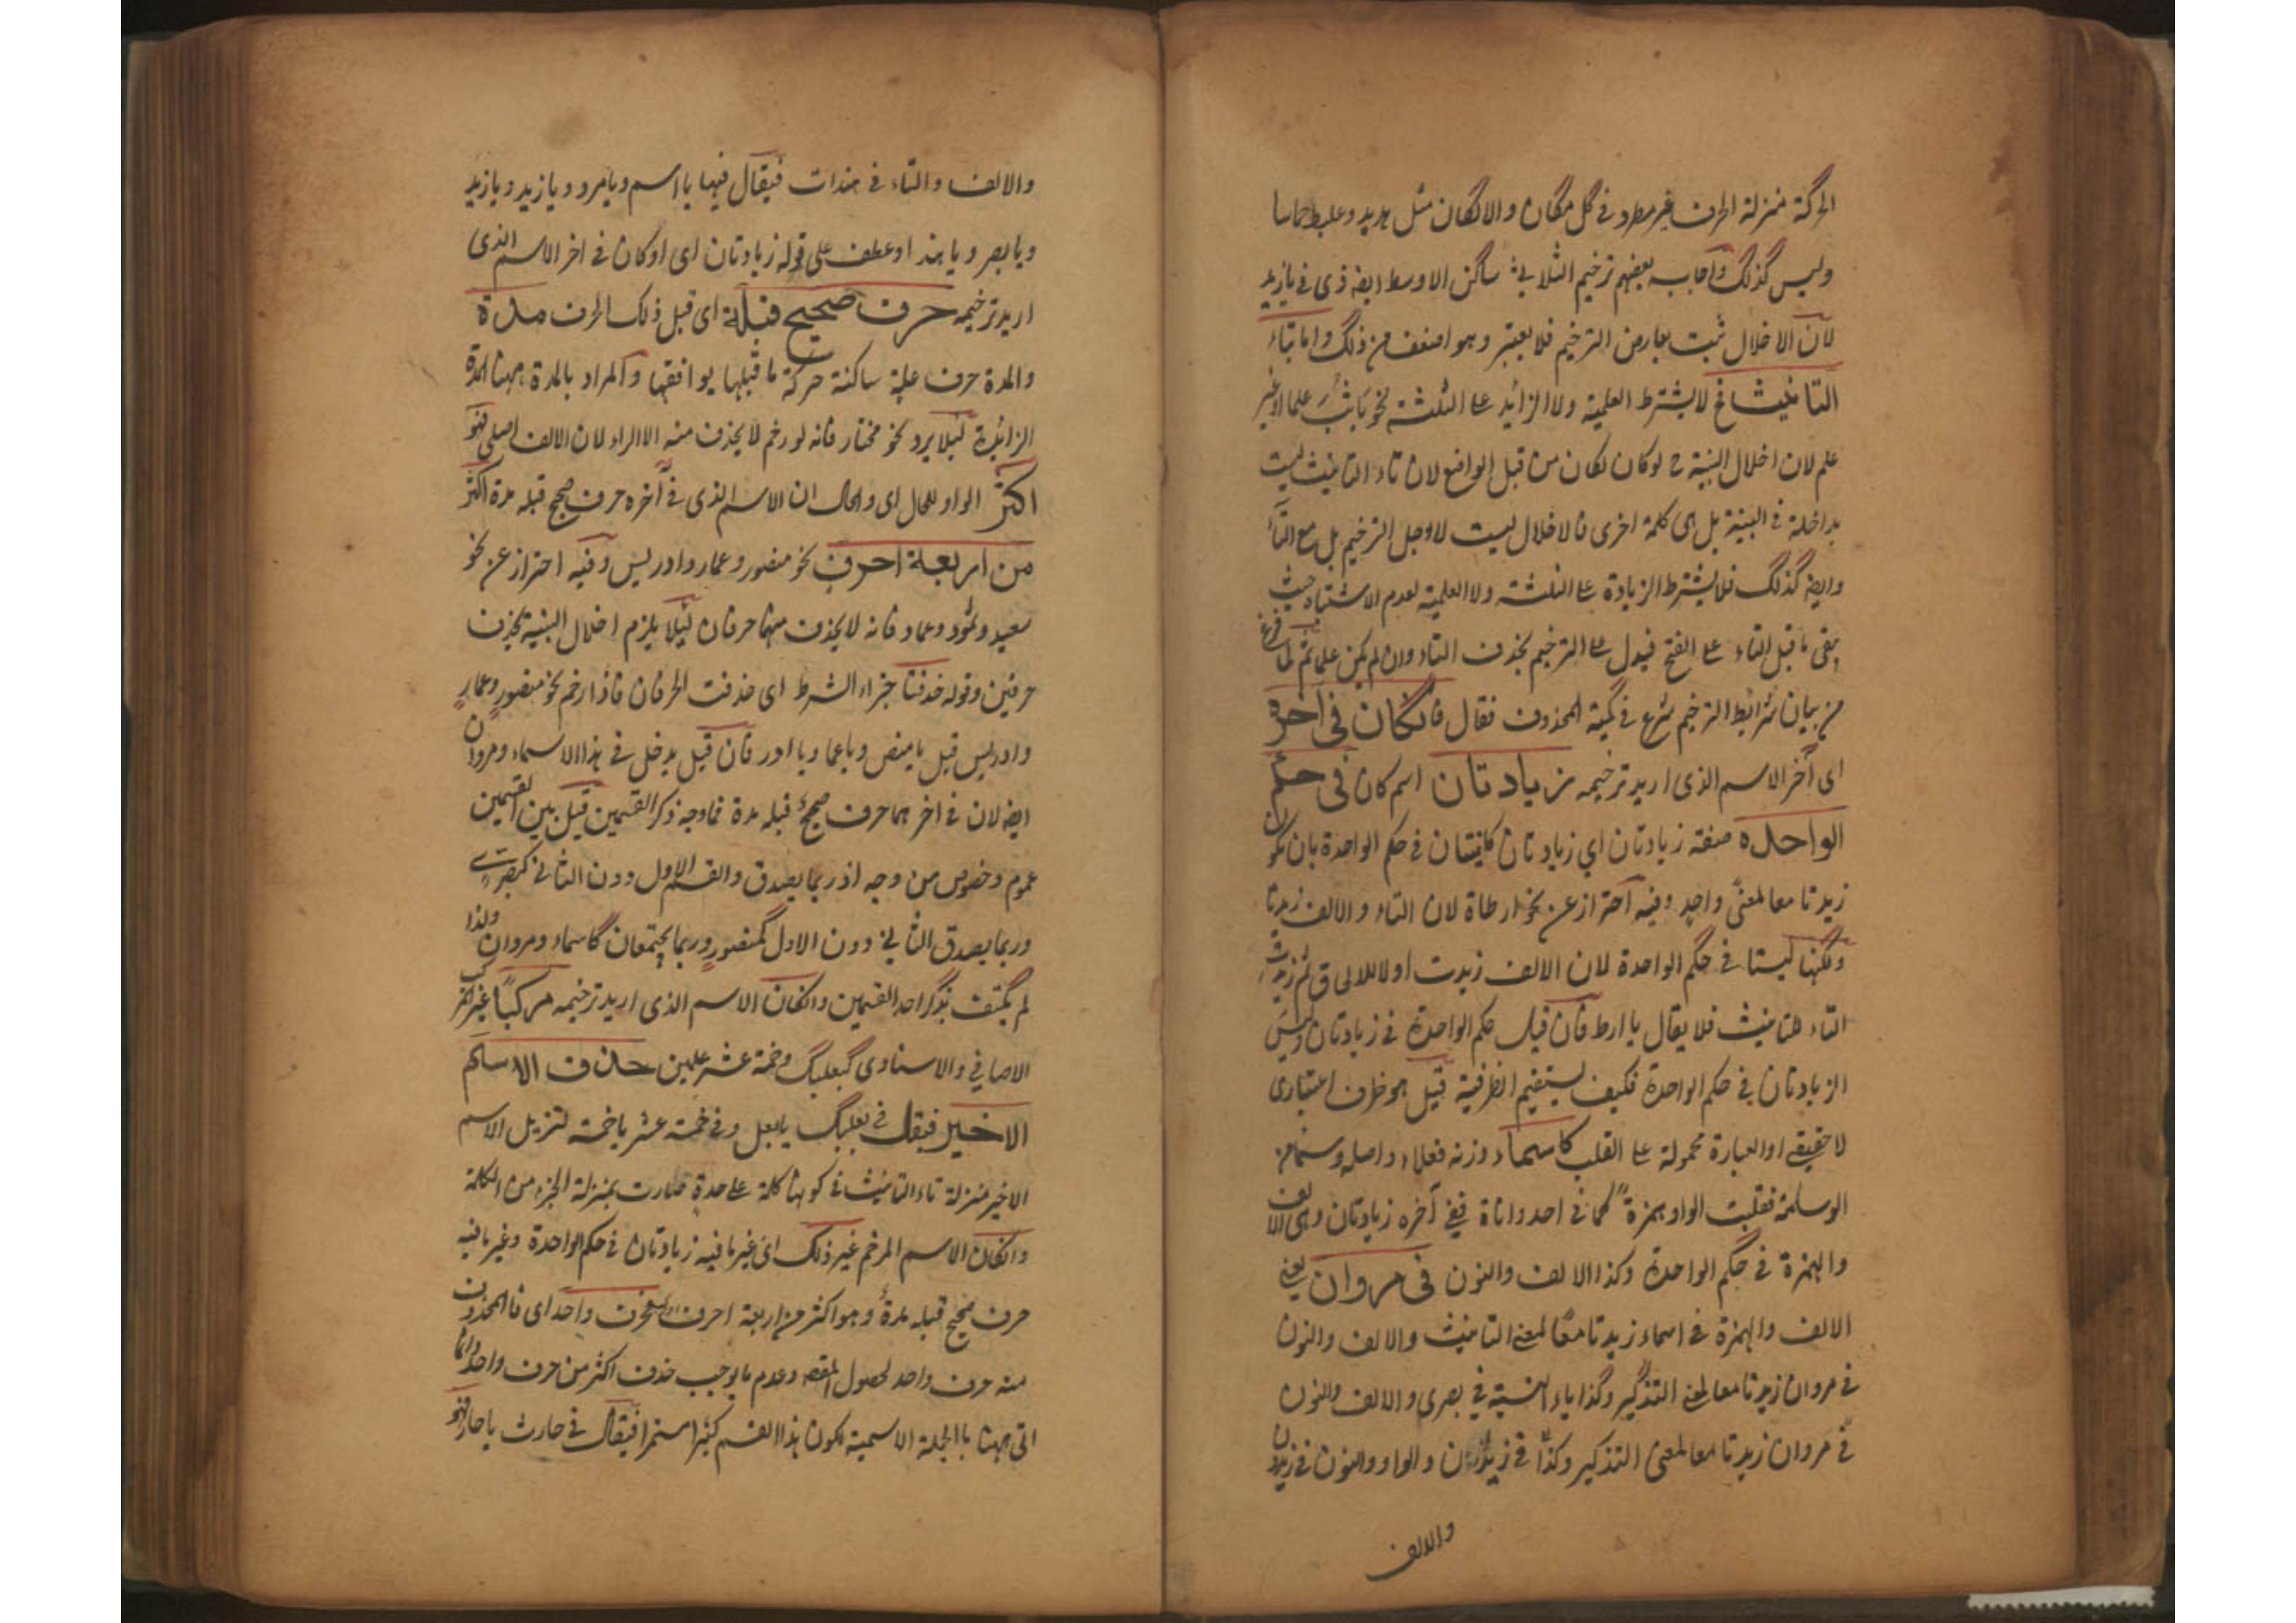 الحركة منزلة الحرف غير مطرد في كل مكان والالكان مثل هدبد وعلبط خماسا
وليس كذلك واجاب بعضهم ترخيم الثلاثي ساكن الاوسط ايضا في يا زيد
لان الاخلال ثبت بعارض الترخيم فلا يعتبر وهو اضعف من ذلك واما بتاء
التانيث لا يشترط العلمية ولا الزائد على الثلثة نحو يا ثب علما او غير
علم لان اخلال البنية ح لو كان لكان من قبل الواضع لان تاء التانيث ليست
بداخلة في البنية بل هي كلمة اخرى فالاخلال ليست لاجل الترخيم بل مع التاء
وايضا كذلك فلا يشترط الزيادة على الثلثة ولا العلمية لعدم الاشتباه حيث
يبقى ما قبل التاء على الفتح فيدل على الترخيم بحذف التاء وان لم يكن علما ثم لما فرغ
من بيان شرائط الترخيم شرع في كمية المحذوف فقال فان كان في اخره
اى آخر الاسم الذى اريد ترخيمه زيادتان اسم كان في حكم
الواحدة صفة زيادتان اي زيادتان كائنتان في حكم الواحدة بان تكون
زيدتا معا لمعنى واحد وفيه احتراز عن نحو ارطاة لان التاء والالف زيدتا
ولكنها ليستا في حكم الواحدة لان الالف زيدت اولا للالحاق ثم زيدت
التاء للتانيث فلا يقال يا ارط فان قيل حكم الواحدة في زيادتان وليس
الزيادتان في حكم الواحدة فكيف يستقيم الظرفية قيل هو ظرف اعتبارى
لا حقيقي او العبارة محمولة على القلب كاسماء وزنه فعلاء واصله وسماء من
الوسامة فقلبت الواو همزة كما في احد واناة ففي آخره زيادتان وهى الالف
والهمزة في حكم الواحدة وكذا الالف والنون في مروان يعني
الالف والهمزة في اسماء زيدتا معا لمعنى التانيث والالف والنون
في مروان زيدتا معا لمعنى التذكير وكذا ياء النسبة في بصرى والالف والنون
في مروان زيدتا معا لمعنى التذكير وكذا في زيدان والواو والنون في زيدون
والالف
والالف والتاء في هندات فيقال فيها يا اسم ويا مرو ويا زيد ويا زيد
ويا بصر ويا هند او عطف على قوله زيادتان اى او كان في اخر الاسم الذى
اريد ترخيمه حرف صحيح قبله اى قبل ذلك الحرف مدة
والمدة حرف علة ساكنة حركة ما قبلها يوافقها والمراد بالمدة ههنا المدة
الزائدة لئلا يرد نحو مختار فانه لو رخم لا يحذف منه الا الراء لان الالف اصلى فهو
اكثر الواو للحال اى والحال ان الاسم الذى في آخره حرف صحيح قبله مدة اكثر
من اربعة احرف نحو منصور وعمار وادريس وفيه احتراز عن نحو
سعيد وثمود وعماد فانه لا يحذف منها حرفان لئلا يلزم اخلال البنية بحذف
حرفين وقوله حذفتا جزاء الشرط اى حذفت الحرفان فاذا رخم نحو منصور وعمار
وادريس قيل يا منص ويا عما ويا ادر فان قيل يدخل في هذا الاسماء ومروان
ايضا لان في اخرهما حرف صحيح قبله مدة فما وجه ذكر القسمين قيل بين القسمين
عموم وخصوص من وجه اذ ربما يصدق والقسم الاول دون الثاني كبصري
وربما يصدق الثاني دون الاول كمنصور وربما يجتمعان كاسماء ومروان ولذا
لم يكتف بذكر احد القسمين وان كان الاسم الذى اريد ترخيمه مركبا غير المركب
الاضافي والاسنادى كبعلبك وخمسة عشر علمين حذف الاسم
الاخير فيقال في بعلبك يا بعل وفي خمسة عشر يا خمسة لتنزيل الاسم
الاخير منزلة تاء التانيث في كونها كلمة على حدة صارت بمنزلة الجزء من الكلمة
وان كان الاسم المرخم غير ذلك اى غير ما فيه زيادتان في حكم الواحدة وغير ما فيه
حرف صحيح قبله مدة وهو اكثر من اربعة احرف فحرف واحد اى فالمحذوف
منه حرف واحد لحصول المقصود وعدم ما يوجب حذف اكثر من حرف واحد وانما
اتى ههنا بالجملة الاسمية لكون هذا القسم كثيرا مستمرا فيقال في حارث يا حار